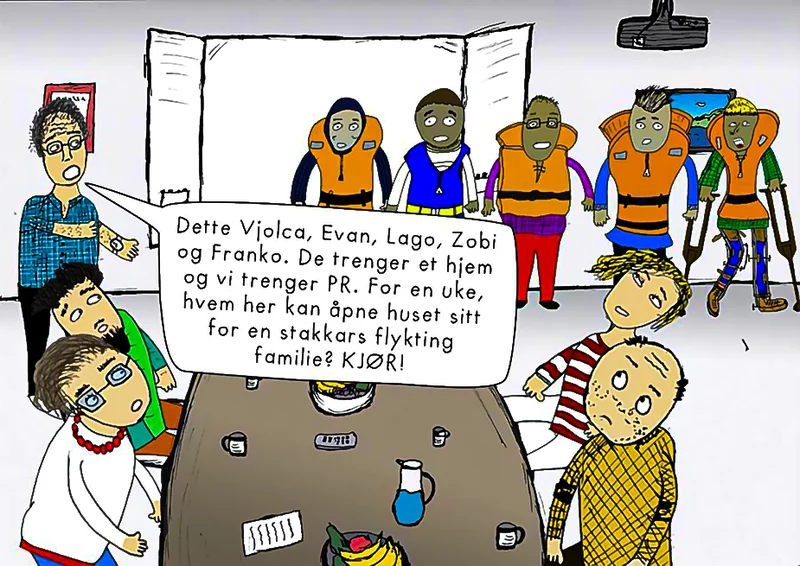 Dette Vjolca, Evan, Lago, Zobi
og Franko. De trenger et hjem
og vi trenger PR. For en uke,
hvem her kan åpne huset sitt
for en stakkars flykting
familie? KJØR!